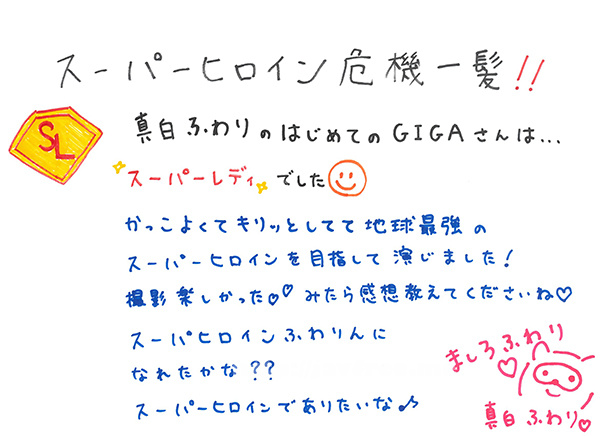 スーパーヒロイン危機一髪!!
SL
真白ふわりのはじめてのGIGAさんは...
スーパーレディでした
かっこよくてキリッとしてて地球最強の
スーパーヒロインを目指して演じました!
撮影楽しかった♡♡ みたら感想教えてくださいね♡
スーパヒロインふわりんに
なれたかな??
スーパーヒロインでありたいな♪
ましろふわり
♡
真白ふわり♡